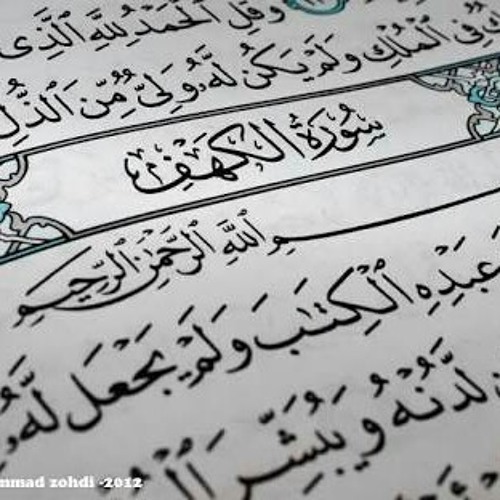 وَقُلِ ٱلْحَمْدُ لِلَّهِ ٱلَّذِى
فِى ٱلْمُلْكِ وَلَمْ يَكُن لَّهُۥ وَلِىٌّ مِّنَ ٱلذُّلِّ
سُورَةُ الكَهْفِ
بِسْمِ ٱللَّهِ ٱلرَّحْمَٰنِ ٱلرَّحِيمِ
عَبْدِهِ ٱلْكِتَٰبَ وَلَمْ يَجْعَل لَّهُۥ
لَّدُنْهُ وَيُبَشِّرَ
mmad zohdi -2012